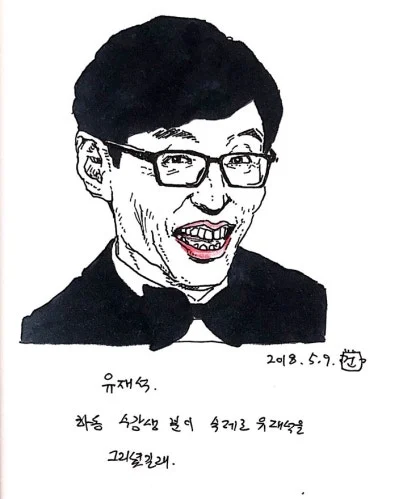 2018. 5. 9.
유재석.
화동 수강생 분이 숙제로 유재석을
그리셨길래.